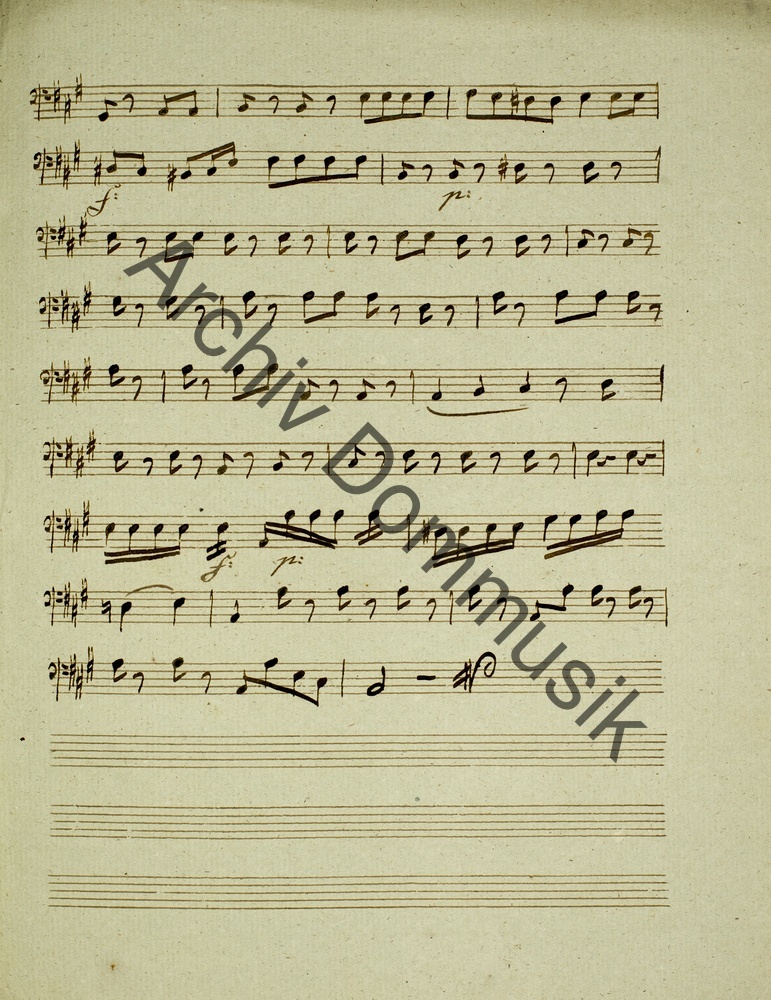 f: p:
f: p:
Archiv Dommusik